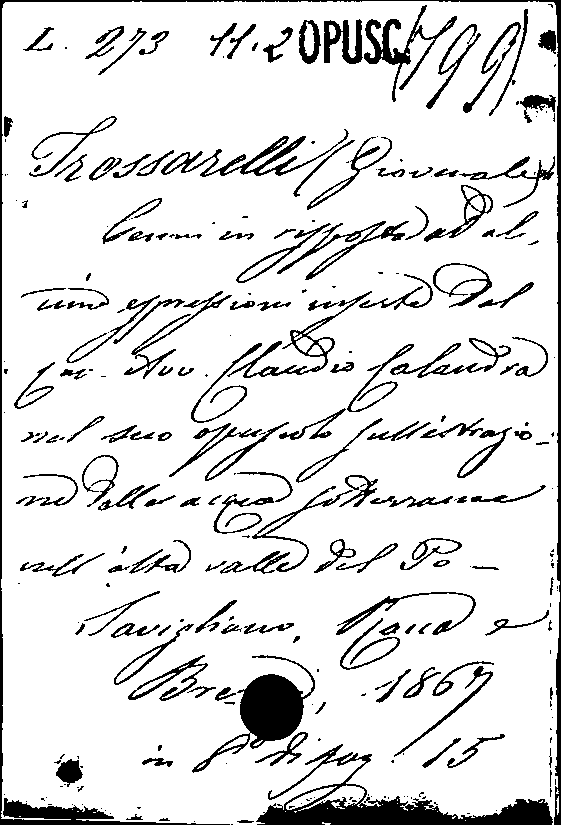 L. 273 11.2 OPUSC. (799)
Trossarelli (Giovenale)
Cenni in risposta ad al,
cune espressioni inserte dal
Cav. Avv. Claudio Calandra
nel suo opuscolo sull'estrazio-
ne delle acque sotterranee
nell'alta valle del Po -
Savigliano, Racca e
Bre, 1867
in 8º di pag. 15